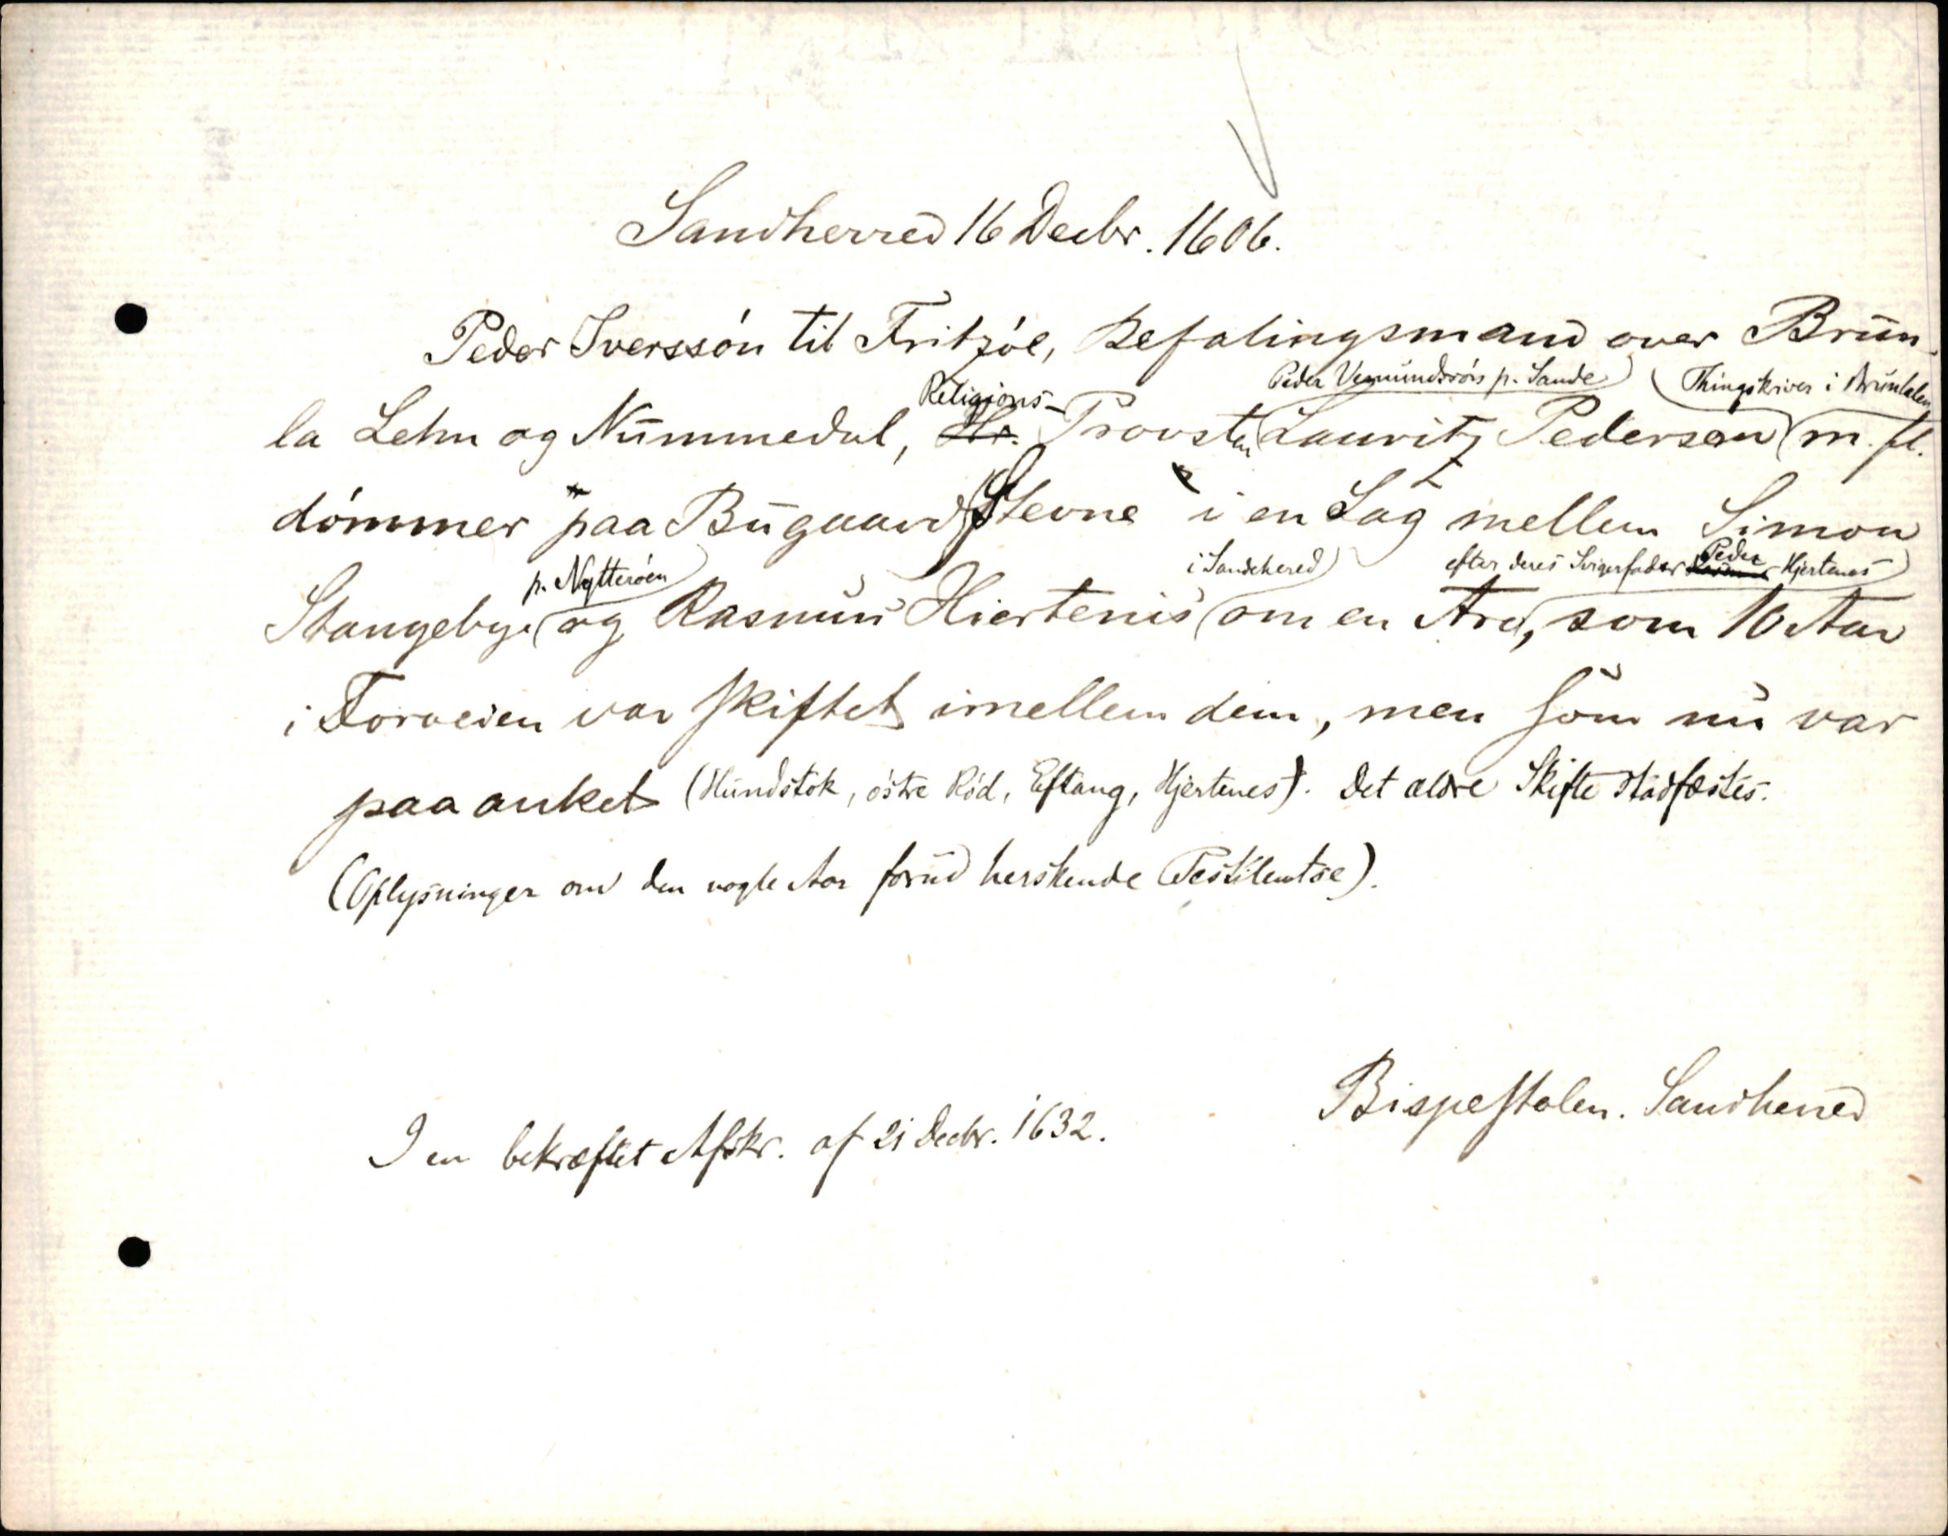 Sandherred 16 Decbr. 1606.
Peder Iverssön til Fritzöe, Befalingsmand over Brun-
Religions- Peder Vemundssöns p. Sande Thingskriver i Brunlalen
la Lehn og Nummedal, Hr. Provsten Lauritz Pedersøn m. fl.
dömmer "paa Bugaard Stevne" i en Sag mellem Simon
p. Nøtteröen i Sandehered efter deres Svigerfader Peder Hjertenes
Stangebye og Rasmus Hiertenis om en Arv, som 10 Aar
i Forveien var skiftet imellem dem, men som nu var
paaanket (Hundstok, östre Röd, Eftang, Hjertenes). Det ældre Skifte stadfæstes.
(Oplysninger om den nogle Aar forud herskende Pestilentse).
I en bekræftet Afskr. af 21 Decbr. 1632.
Bispestolen. Sandherred